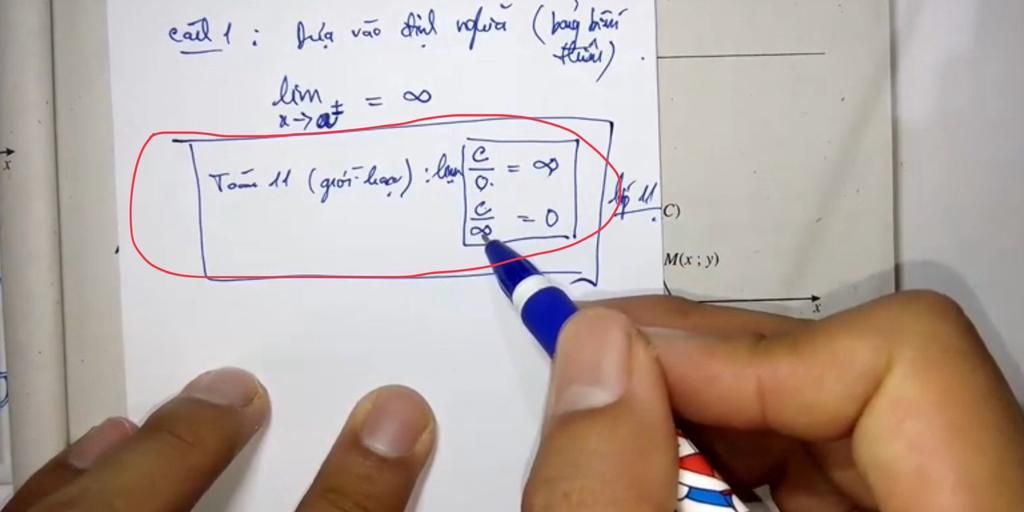 cách 1 : Dựa vào định nghĩa (bảng biến
thiên)
lim = ∞
x→a±
Toán 11 (giới hạn) : lim c/0 = ∞
c/∞ = 0
lớp 11
C)
M(x ; y)
x
x